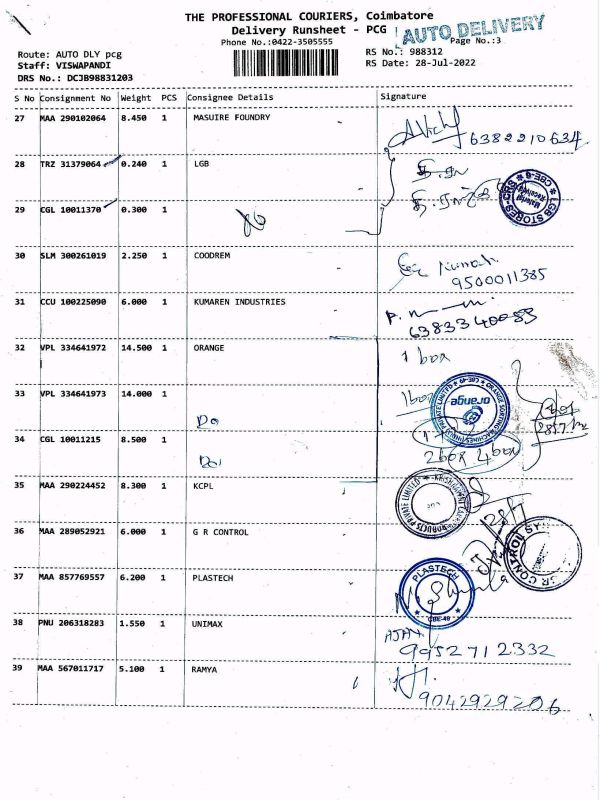 THE PROFESSIONAL COURIERS, Coimbatore
Delivery Runsheet - PCG
AUTO DELIVERY
Phone No.:0422-3505555
Page No.:3
Route: AUTO DLY pcg
RS No.: 988312
Staff: VISWAPANDI
RS Date: 28-Jul-2022
DRS No.: DCJB98831203
S No Consignment No Weight PCS Consignee Details Signature
27 MAA 290102064 8.450 1 MASUIRE FOUNDRY
6382210634
28 TRZ 31379064 0.240 1 LGB
LGB STORES-CRS CBE-6 Material Received
29 CGL 10011370 0.300 1
30 SLM 300261019 2.250 1 COODREM
Kumar
9500011385
31 CCU 100225090 6.000 1 KUMAREN INDUSTRIES
6383340083
32 VPL 334641972 14.500 1 ORANGE
1 box
33 VPL 334641973 14.000 1
Do
1 box
orange
ORANGE SORTING MACHINES (INDIA) PRIVATE LIMITED
34 CGL 10011215 8.500 1
Do
2 box 4 box
35 MAA 290224452 8.300 1 KCPL
PRODUCTS PRIVATE LIMITED
36 MAA 289052921 6.000 1 G R CONTROL
28/7
GR CONTROL
37 MAA 857769557 6.200 1 PLASTECH
PLASTECH
CBE-49
38 PNU 206318283 1.550 1 UNIMAX
AJAY
9952712332
39 MAA 567011717 5.100 1 RAMYA
9042929206